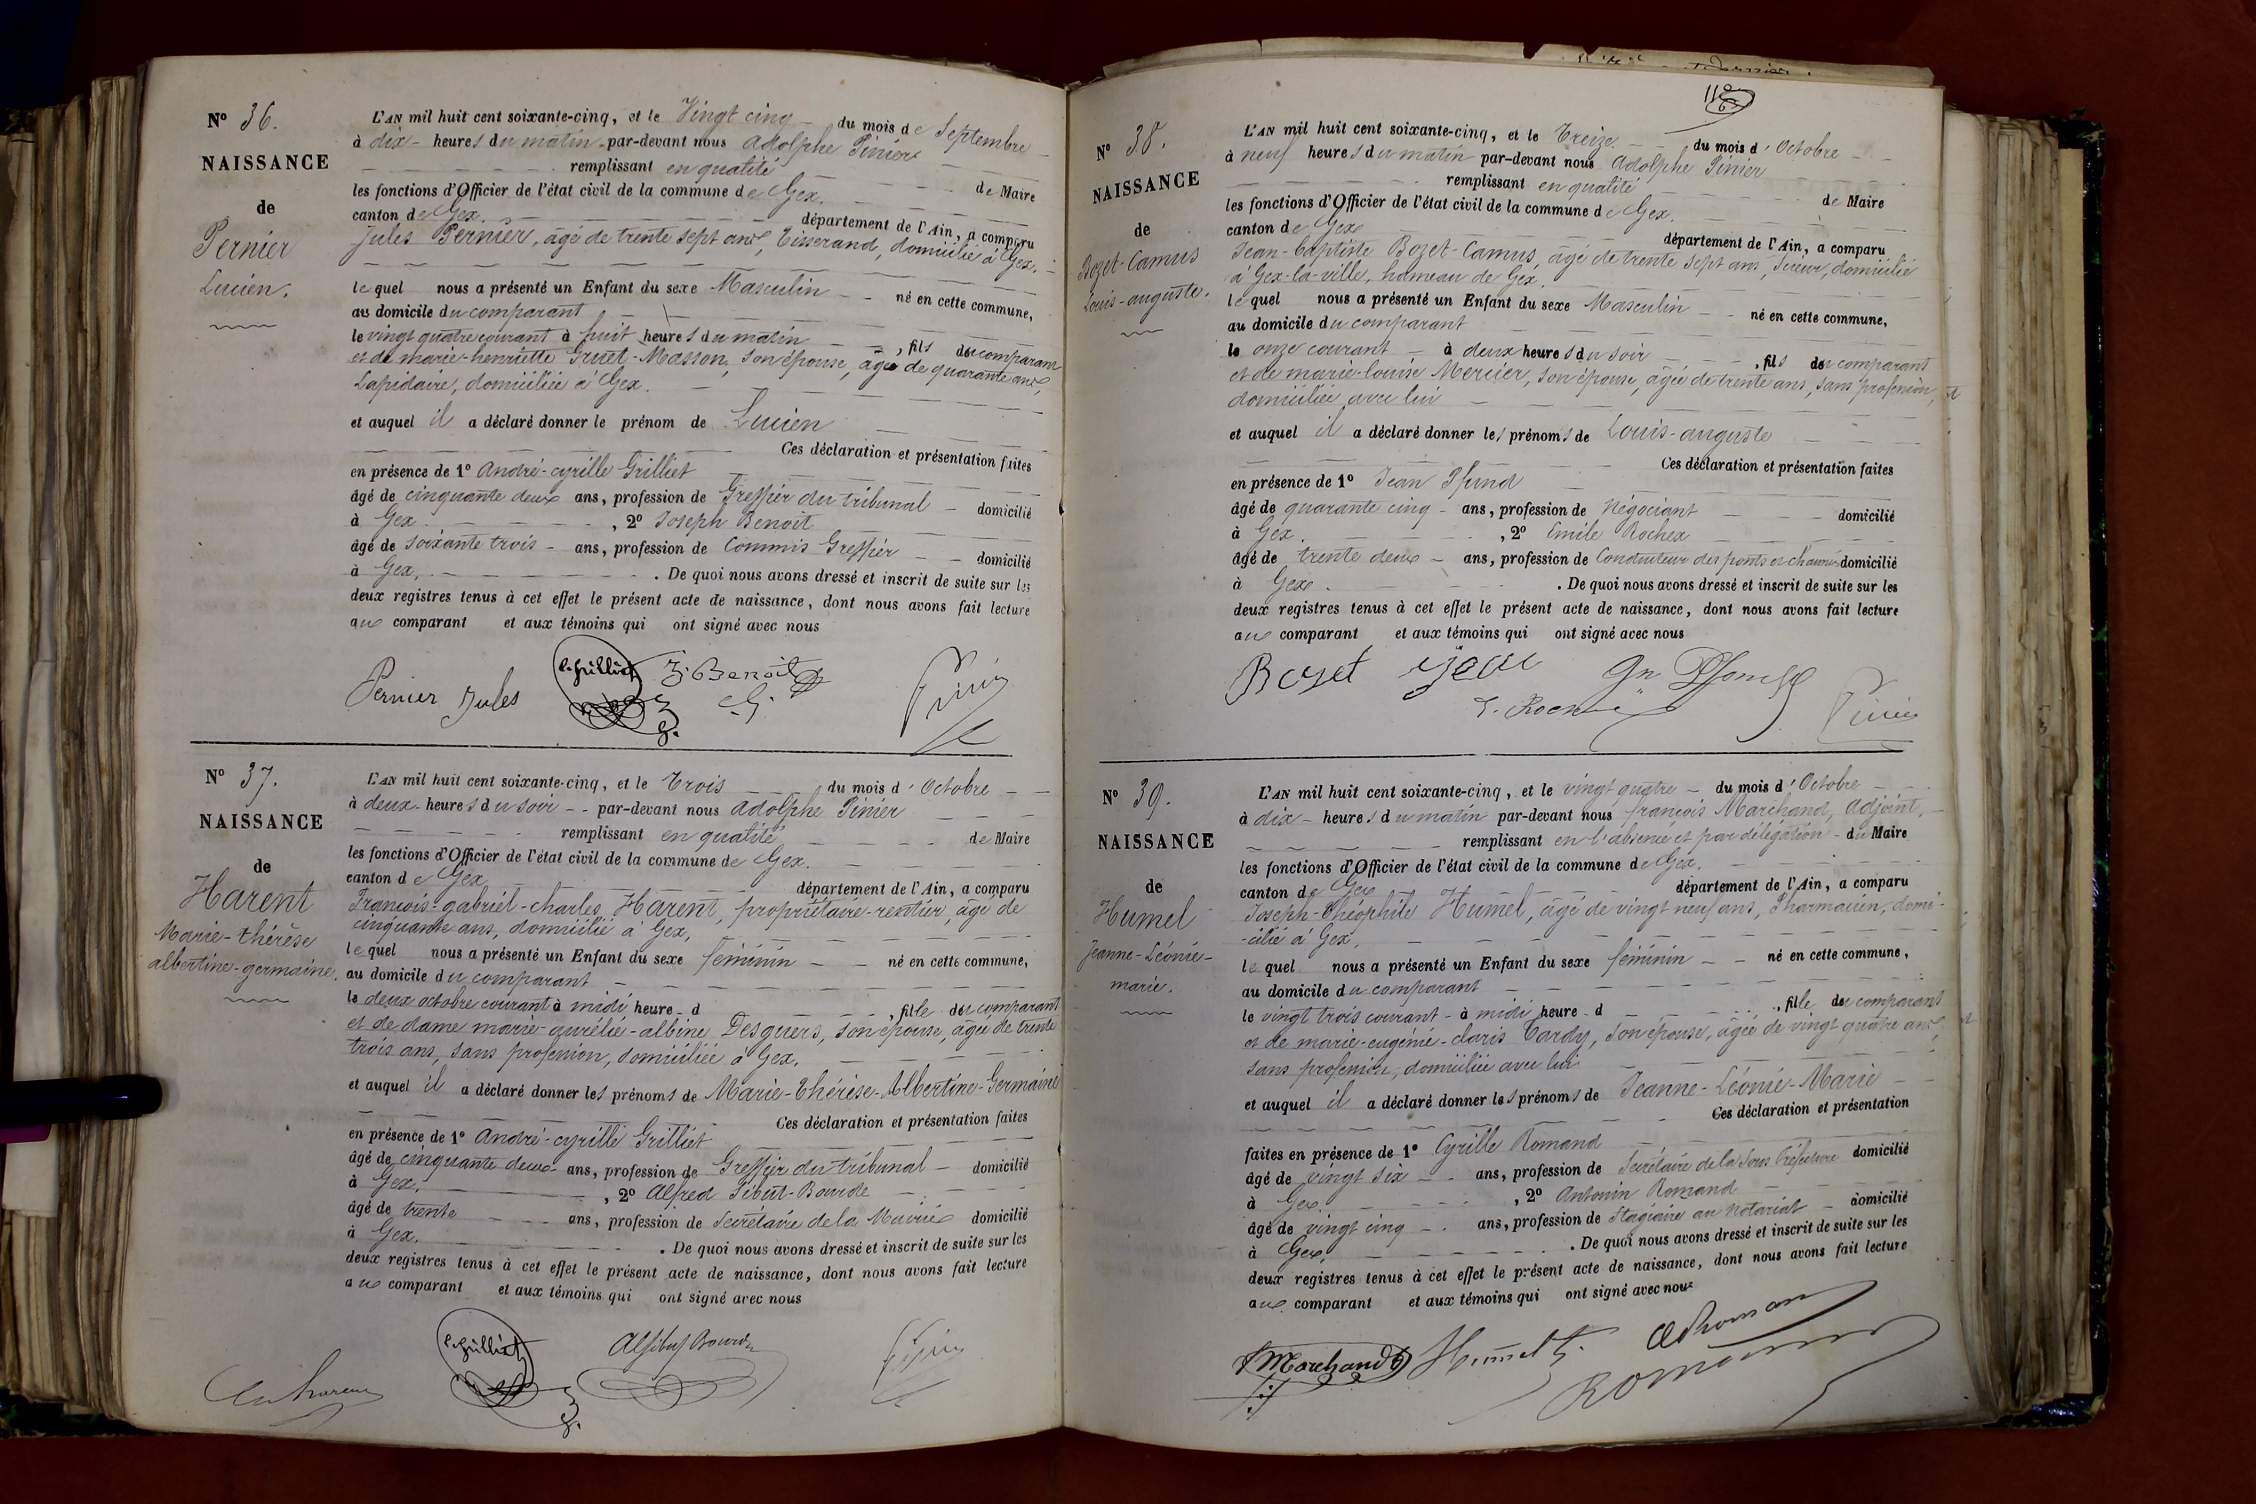 Nº 36.
NAISSANCE
de
Pernier
Lucien.
L'AN mil huit cent soixante-cinq, et le Vingt cinq du mois de Septembre
à dix heures du matin par-devant nous Adolphe Pinier
remplissant en qualité de Maire
les fonctions d'Officier de l'état civil de la commune de Gex.
canton de Gex. département de l'Ain, a comparu
Jules Pernier, âgé de trente sept ans, Tisserand, domicilié à Gex,
lequel nous a présenté un Enfant du sexe Masculin né en cette commune,
au domicile du comparant
le vingt quatre courant à huit heures du matin, fils du comparant
et de marie-henriette Gruet-Masson, son épouse, âgée de quarante ans,
Lapidaire, domiciliée à Gex.
et auquel il a déclaré donner le prénom de Lucien
Ces déclaration et présentation faites
en présence de 1º André-cyrille Grilliet
âgé de cinquante deux ans, profession de Greffier du tribunal domicilié
à Gex. , 2º Joseph Benoit
âgé de soixante trois ans, profession de Commis Greffier domicilié
à Gex, . De quoi nous avons dressé et inscrit de suite sur les
deux registres tenus à cet effet le présent acte de naissance, dont nous avons fait lecture
au comparant et aux témoins qui ont signé avec nous
Pernier Jules c. grilliet J. Benoit Pinier
Nº 37.
NAISSANCE
de
Harent
Marie-thérèse
albertine-germaine.
L'AN mil huit cent soixante-cinq, et le Trois du mois d'Octobre
à deux heures du soir par-devant nous Adolphe Pinier
remplissant en qualité de Maire
les fonctions d'Officier de l'état civil de la commune de Gex.
canton de Gex département de l'Ain, a comparu
François-gabriel-charles Harent, propriétaire-rentier, âgé de
cinquante ans, domicilié à Gex,
lequel nous a présenté un Enfant du sexe féminin né en cette commune,
au domicile du comparant
le deux octobre courant à midi heure d , fille du comparant
et de dame marie-aurélie-albine Desguers, son épouse, âgée de trente
trois ans, sans profession, domiciliée à Gex,
et auquel il a déclaré donner les prénoms de Marie-Thérèse-Albertine-Germaine
Ces déclaration et présentation faites
en présence de 1º André-cyrille Grilliet
âgé de cinquante deux ans, profession de Greffier du tribunal domicilié
à Gex. , 2º Alfred Sibut-Bourde
âgé de trente ans, profession de Secrétaire de la Mairie domicilié
à Gex. . De quoi nous avons dressé et inscrit de suite sur les
deux registres tenus à cet effet le présent acte de naissance, dont nous avons fait lecture
au comparant et aux témoins qui ont signé avec nous
c. grilliet Al Sibut Bourde Pinier
Nº 38.
NAISSANCE
de
Bozet-Camus
Louis-auguste.
L'AN mil huit cent soixante-cinq, et le Treize du mois d'Octobre
à neuf heures du matin par-devant nous Adolphe Pinier
remplissant en qualité de Maire
les fonctions d'Officier de l'état civil de la commune de Gex.
canton de Gex département de l'Ain, a comparu
Jean-Baptiste Bozet-Camus, âgé de trente sept ans, Scieur, domicilié
à Gex-la-ville, hameau de Gex.
lequel nous a présenté un Enfant du sexe Masculin né en cette commune,
au domicile du comparant
le onze courant à deux heures du soir , fils du comparant
et de marie-louise Mercier, son épouse, âgée de trente ans, sans profession,
domiciliée avec lui
et auquel il a déclaré donner les prénoms de Louis-auguste
Ces déclaration et présentation faites
en présence de 1º Jean Pfund
âgé de quarante cinq ans, profession de Négociant domicilié
à Gex. , 2º Emile Rochex
âgé de trente deux ans, profession de Conducteur des ponts et chaussées domicilié
à Gex. . De quoi nous avons dressé et inscrit de suite sur les
deux registres tenus à cet effet le présent acte de naissance, dont nous avons fait lecture
au comparant et aux témoins qui ont signé avec nous
Bozet Pinier
Nº 39.
NAISSANCE
de
Humel
Jeanne-Léonie-
marie.
L'AN mil huit cent soixante-cinq, et le vingt quatre du mois d'Octobre
à dix heures du matin par-devant nous françois Marchand, Adjoint,
remplissant en l'absence et par délégation du Maire
les fonctions d'Officier de l'état civil de la commune de Gex.
canton de Gex département de l'Ain, a comparu
Joseph-Théophile Humel, âgé de vingt neuf ans, Pharmacien, domi-
-cilié à Gex,
lequel nous a présenté un Enfant du sexe féminin né en cette commune,
au domicile du comparant
le vingt trois courant à midi heure d , fille du comparant
et de marie-eugénie-claris Tardy, son épouse, âgée de vingt quatre ans,
sans profession, domiciliée avec lui
et auquel il a déclaré donner les prénoms de Jeanne-Léonie-Marie
Ces déclaration et présentation
faites en présence de 1º Cyrille Romand
âgé de vingt six ans, profession de Secrétaire de la Sous Préfecture domicilié
à Gex. , 2º Antonin Romand
âgé de vingt cinq ans, profession de Stagiaire au notariat domicilié
à Gex. . De quoi nous avons dressé et inscrit de suite sur les
deux registres tenus à cet effet le présent acte de naissance, dont nous avons fait lecture
au comparant et aux témoins qui ont signé avec nous
Marchand Humel
Romand